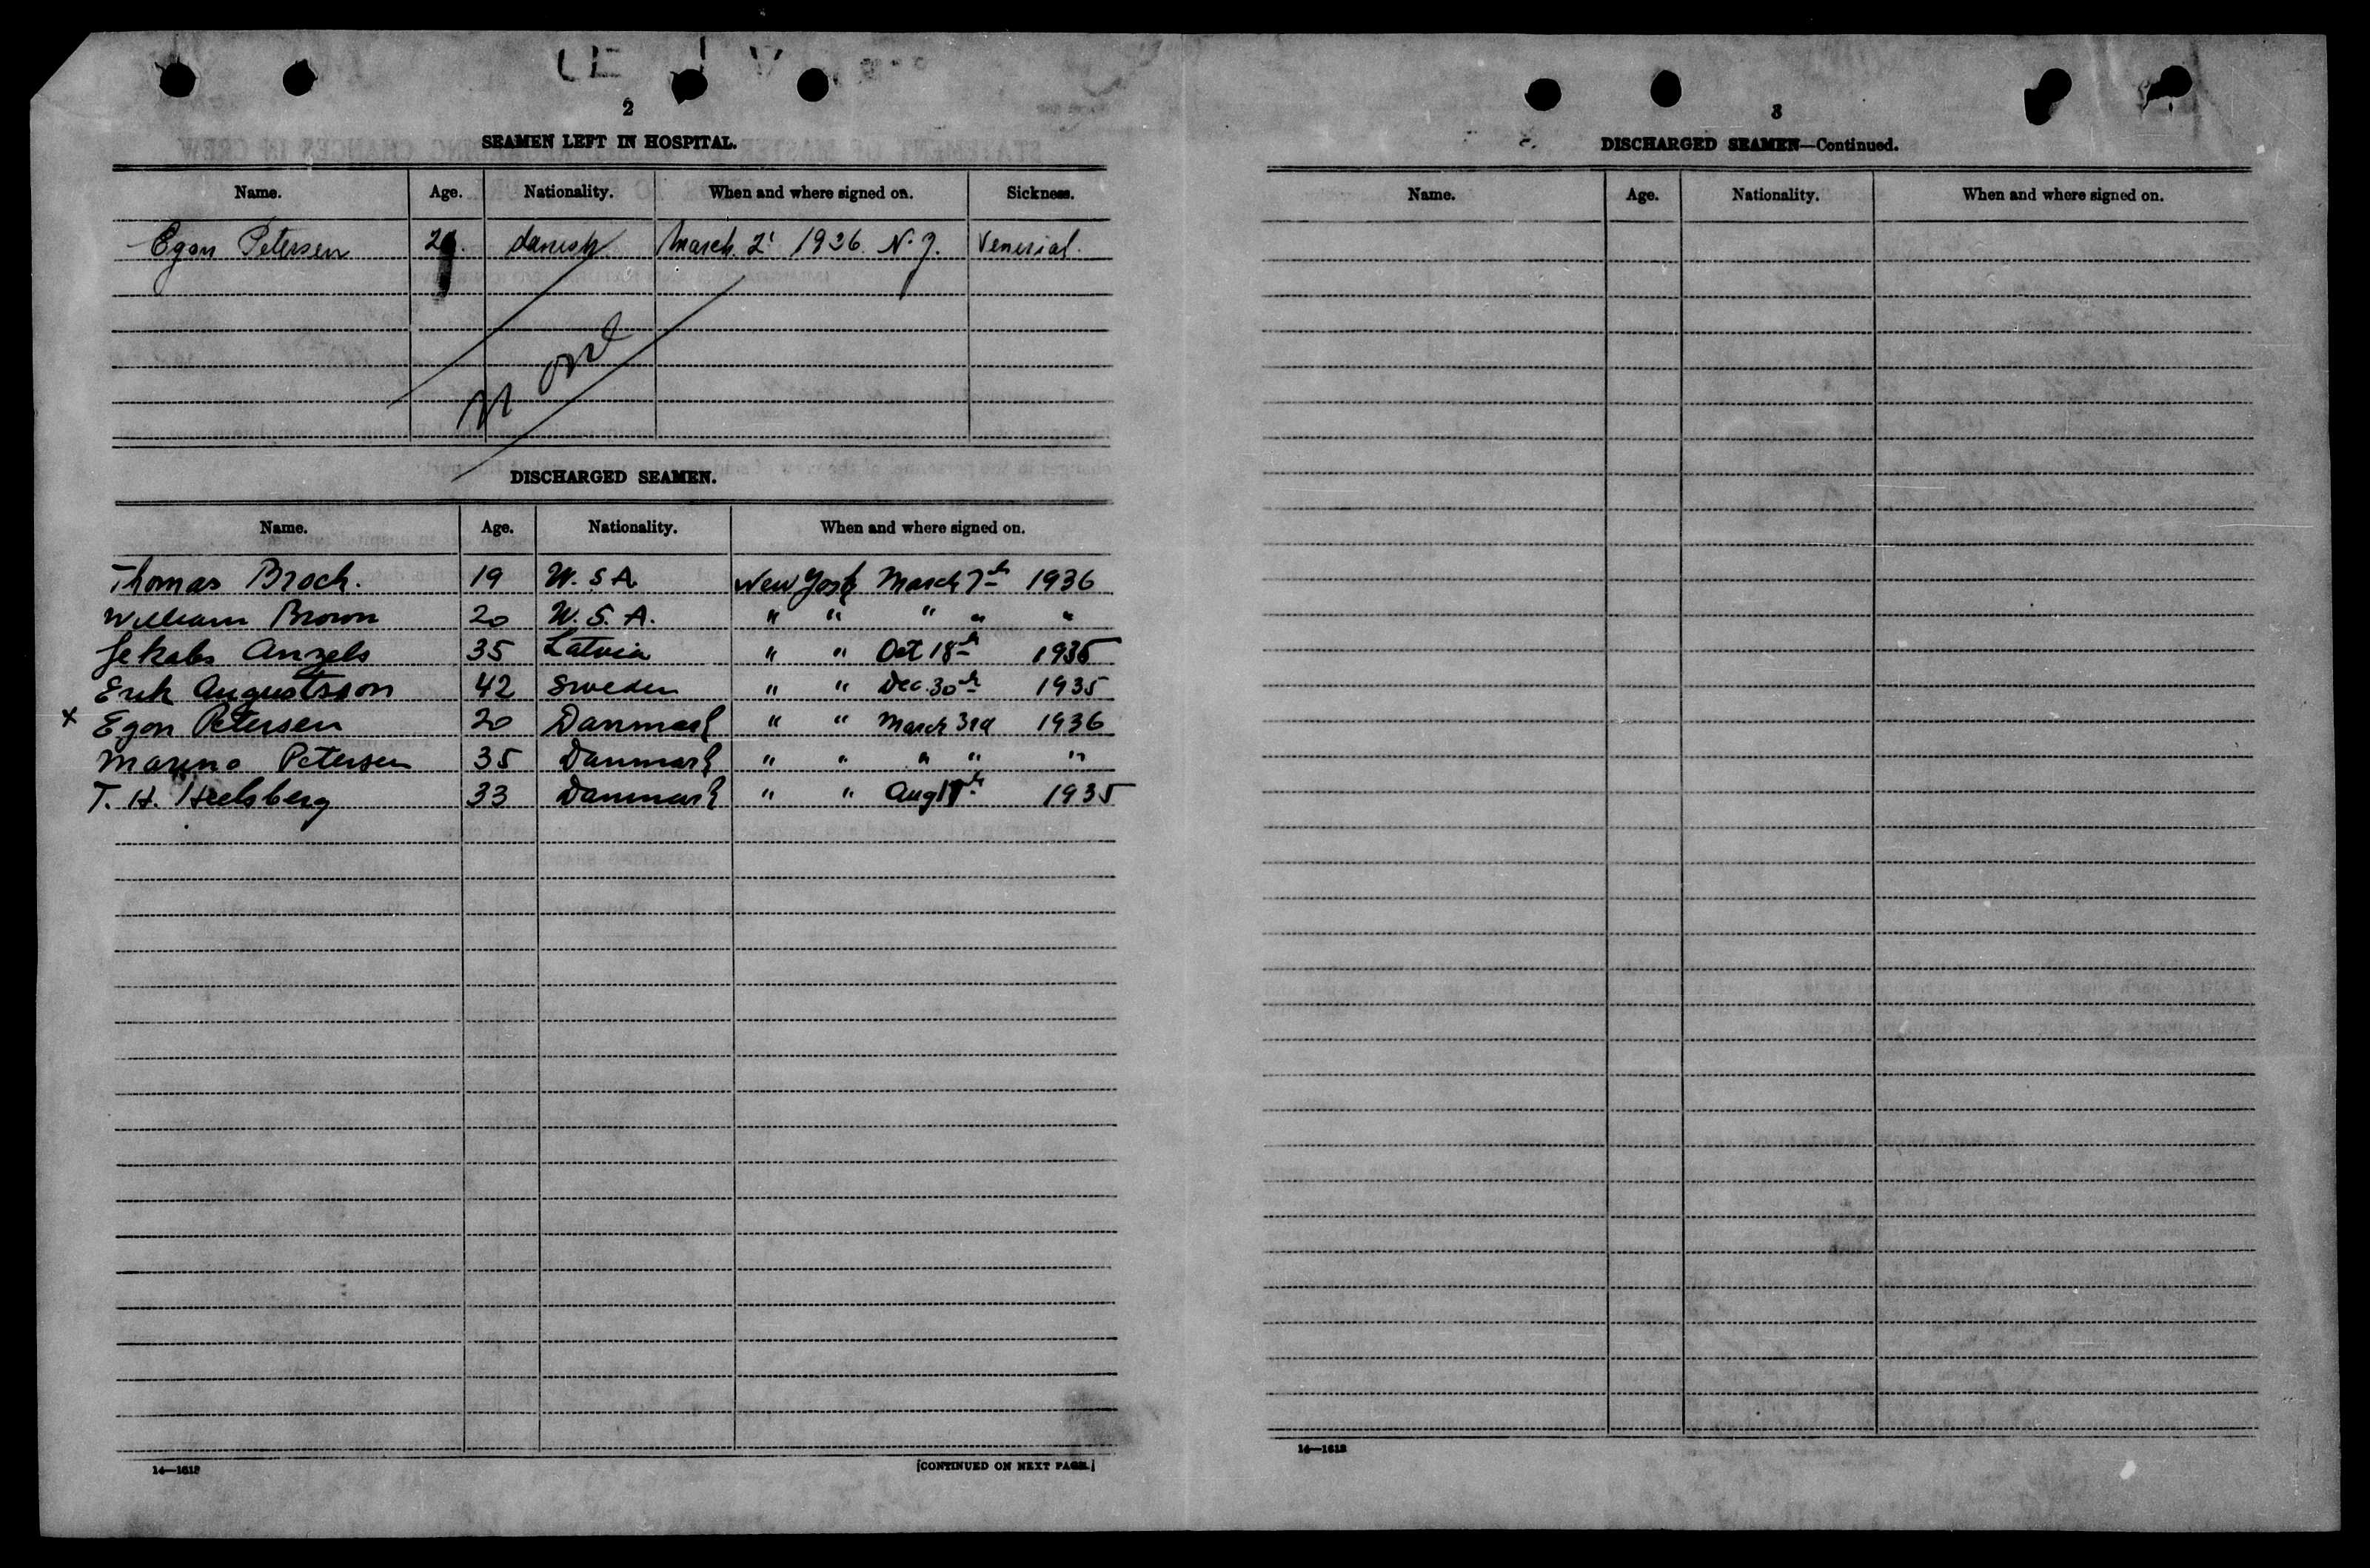 2
SEAMEN LEFT IN HOSPITAL.
Name. Age. Nationality. When and where signed on. Sickness.
Egon Petersen danish March 2' 1936. N.J. Venerial.
None
DISCHARGED SEAMEN.
Name. Age. Nationality. When and where signed on.
Thomas Broch. 19 U.S.A. New York March 7th 1936
William Brown 20 U.S.A. " " " " "
Jekabs Anzels 35 Latvia " " Oct 18th 1935
Erik Augustsson 42 Sweden " " Dec. 30th 1935
x Egon Petersen 20 Danmark " " March 3rd 1936
Marino Petersen 35 Danmark " " " " "
T. H. Heelsberg 33 Danmark " " Aug 1935
14—1618
[CONTINUED ON NEXT PAGE.]
3
DISCHARGED SEAMEN—Continued.
Name. Age. Nationality. When and where signed on.
14—1618